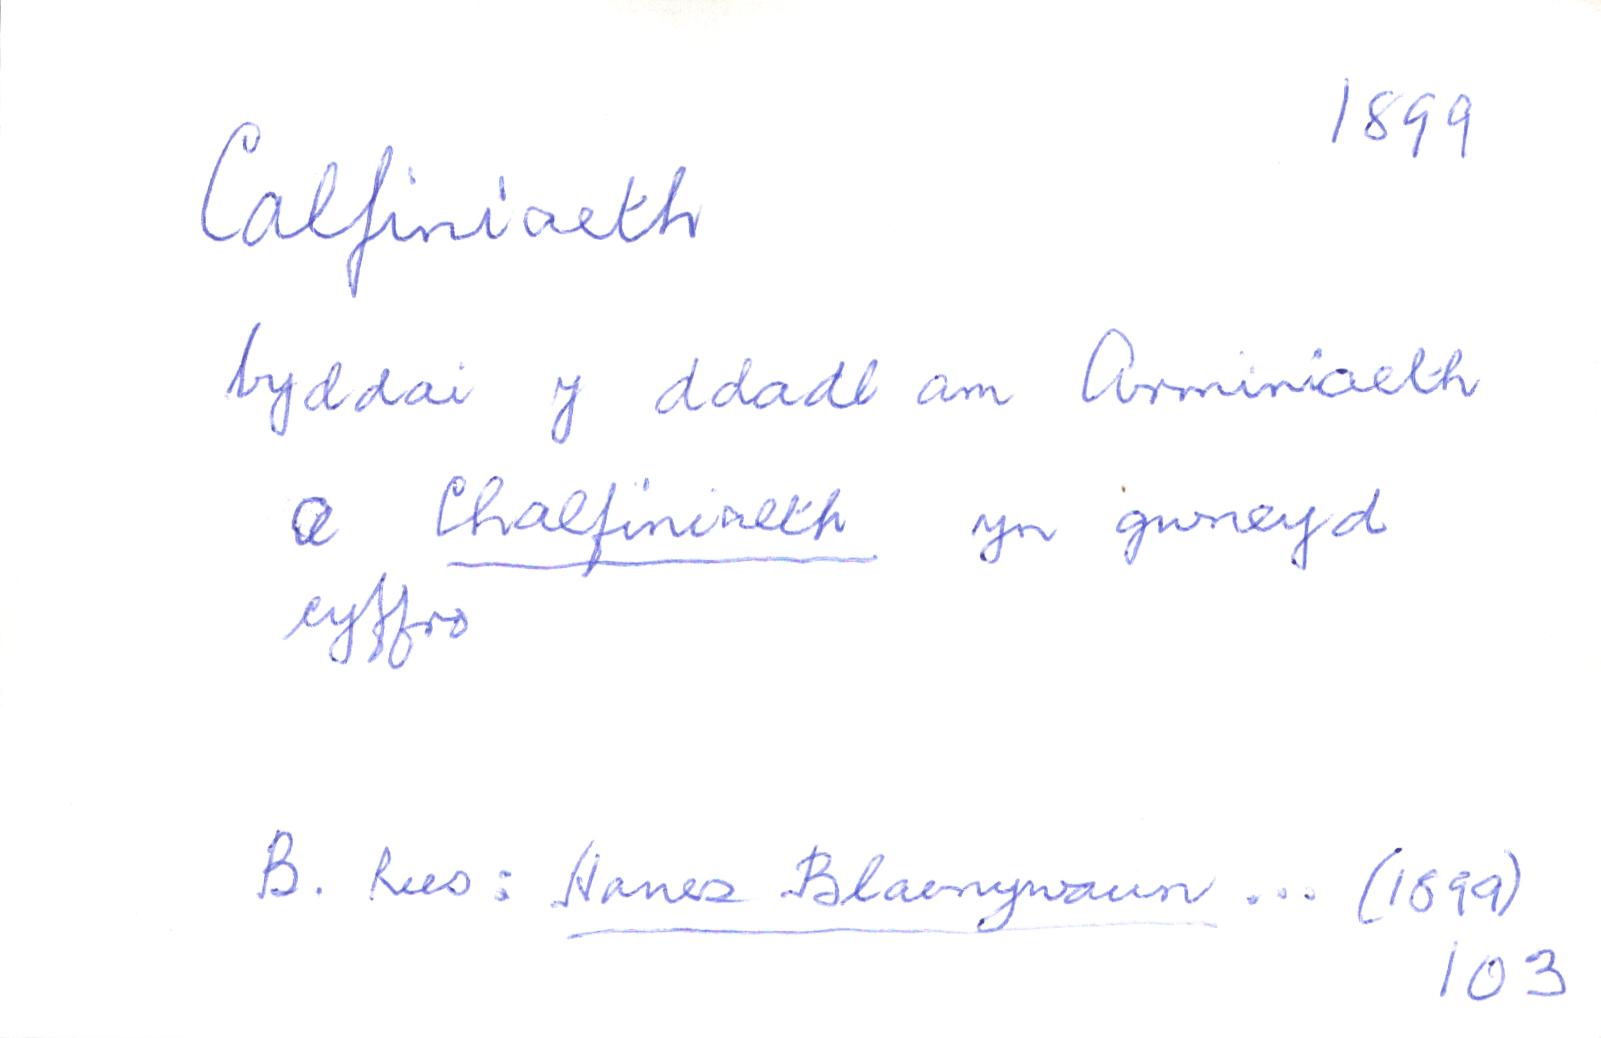 1899
Calfiniaeth
byddai y ddadl am Arminiaeth
a Chalfiniaeth yn gwneyd
cyffro
B. Rees: Hanes Blaenywaun ... (1899)
103